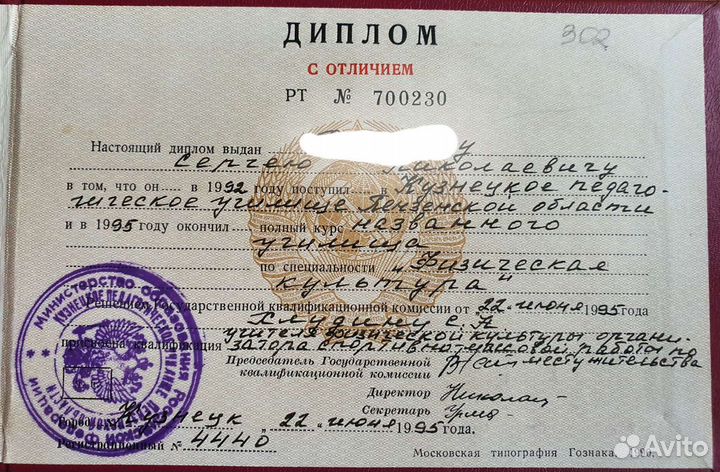 ДИПЛОМ
302
С ОТЛИЧИЕМ
РТ № 700230
Настоящий диплом выдан у
Сергею Николаевичу
в том, что он в 1992 году поступил в Кузнецкое педаго-
гическое училище Пензенской области
и в 1995 году окончил полный курс названного
училища
по специальности „Физическая
культура"
Решением Государственной квалификационной комиссии от 22 июня 1995 года
присвоена квалификация учителя физической культуры органи-
затора спортивно массовой работы по
месту жительства
Председатель Государственной
квалификационной комиссии
Директор
Секретарь
Город Кузнецк „ 22 " июня 1995 года.
Регистрационный № 4440
Московская типография Гознака.
Министерство образования Российской Федерации
Avito